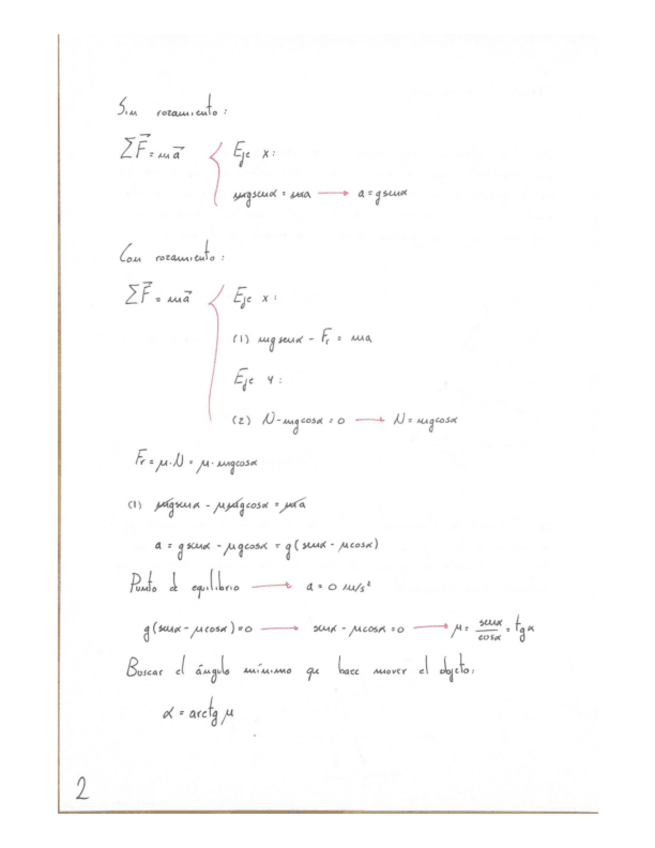 Sin rozamiento:
ΣF⃗ = ma⃗ { Eje x:
mgsenα = ma → a = gsenα
Con rozamiento:
ΣF⃗ = ma⃗ { Eje x:
(1) mgsenα - Fr = ma
Eje y:
(2) N - mgcosα = 0 → N = mgcosα
Fr = μ·N = μ·mgcosα
(1) mgsenα - μmgcosα = ma
a = gsenα - μgcosα = g(senα - μcosα)
Punto de equilibrio → a = 0 m/s²
g(senα - μcosα) = 0 → senα - μcosα = 0 → μ = senα/cosα = tgα
Buscar el ángulo mínimo que hace mover el objeto:
α = arctg μ
2